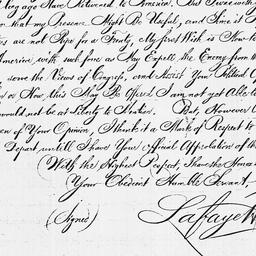 have Delivered to America. But
that my Presence Might Be Useful, and Since it
are not Ripe for a Treaty, My first Wish is Now to
America, with such force as May Expell the Enemy from the
serve the Views of Congress, and Assist Your Political
or How this May Be Effected I am not yet Able to
would not be at Liberty to Mention. But, However
of Your Opinion, I think it a Mark of Respect to
Depart, untill I have Your official Approbation of the
With the Highest Respect, I have the Honor
Your Obedient Humble Servant,
(Signed) Lafayett